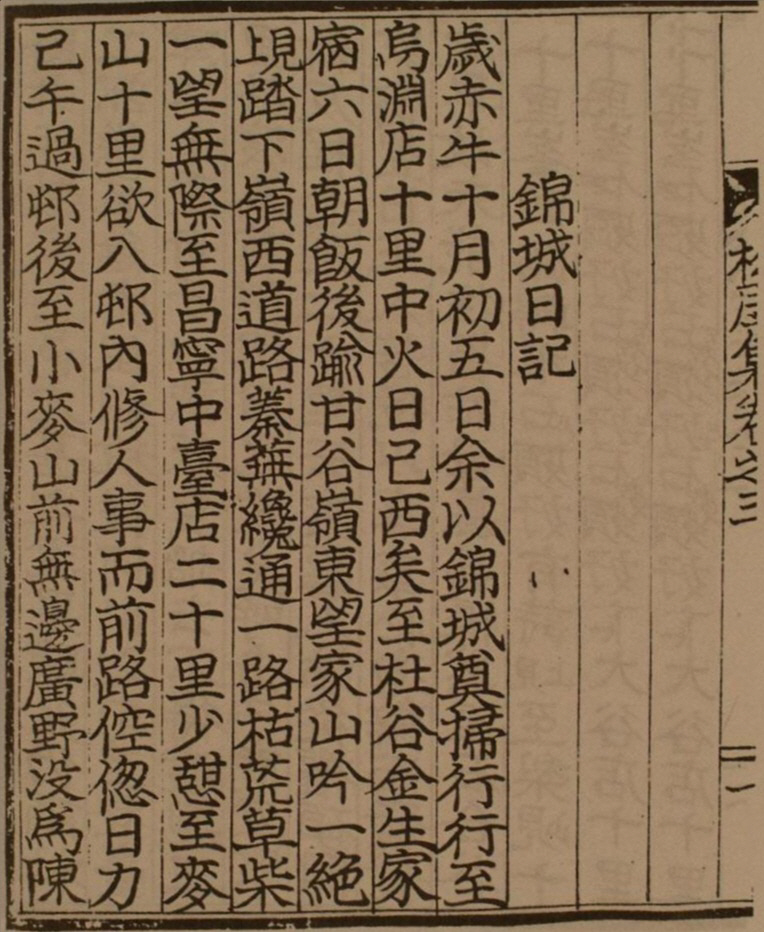 集卷之三
一
錦城日記
歲赤牛十月初五日余以錦城奠掃行行至
烏淵店十里中火日已西矣至杜谷金生家
宿六日朝飯後踰甘谷嶺東望家山吟一絶
見上踏下嶺西道路蓁蕪纔通一路枯荒草柴
一望無際至昌寧中臺店二十里少憇至麥
山十里欲入邨內修人事而前路倥偬日力
已午過邨後至小麥山前無邊廣野没爲陳